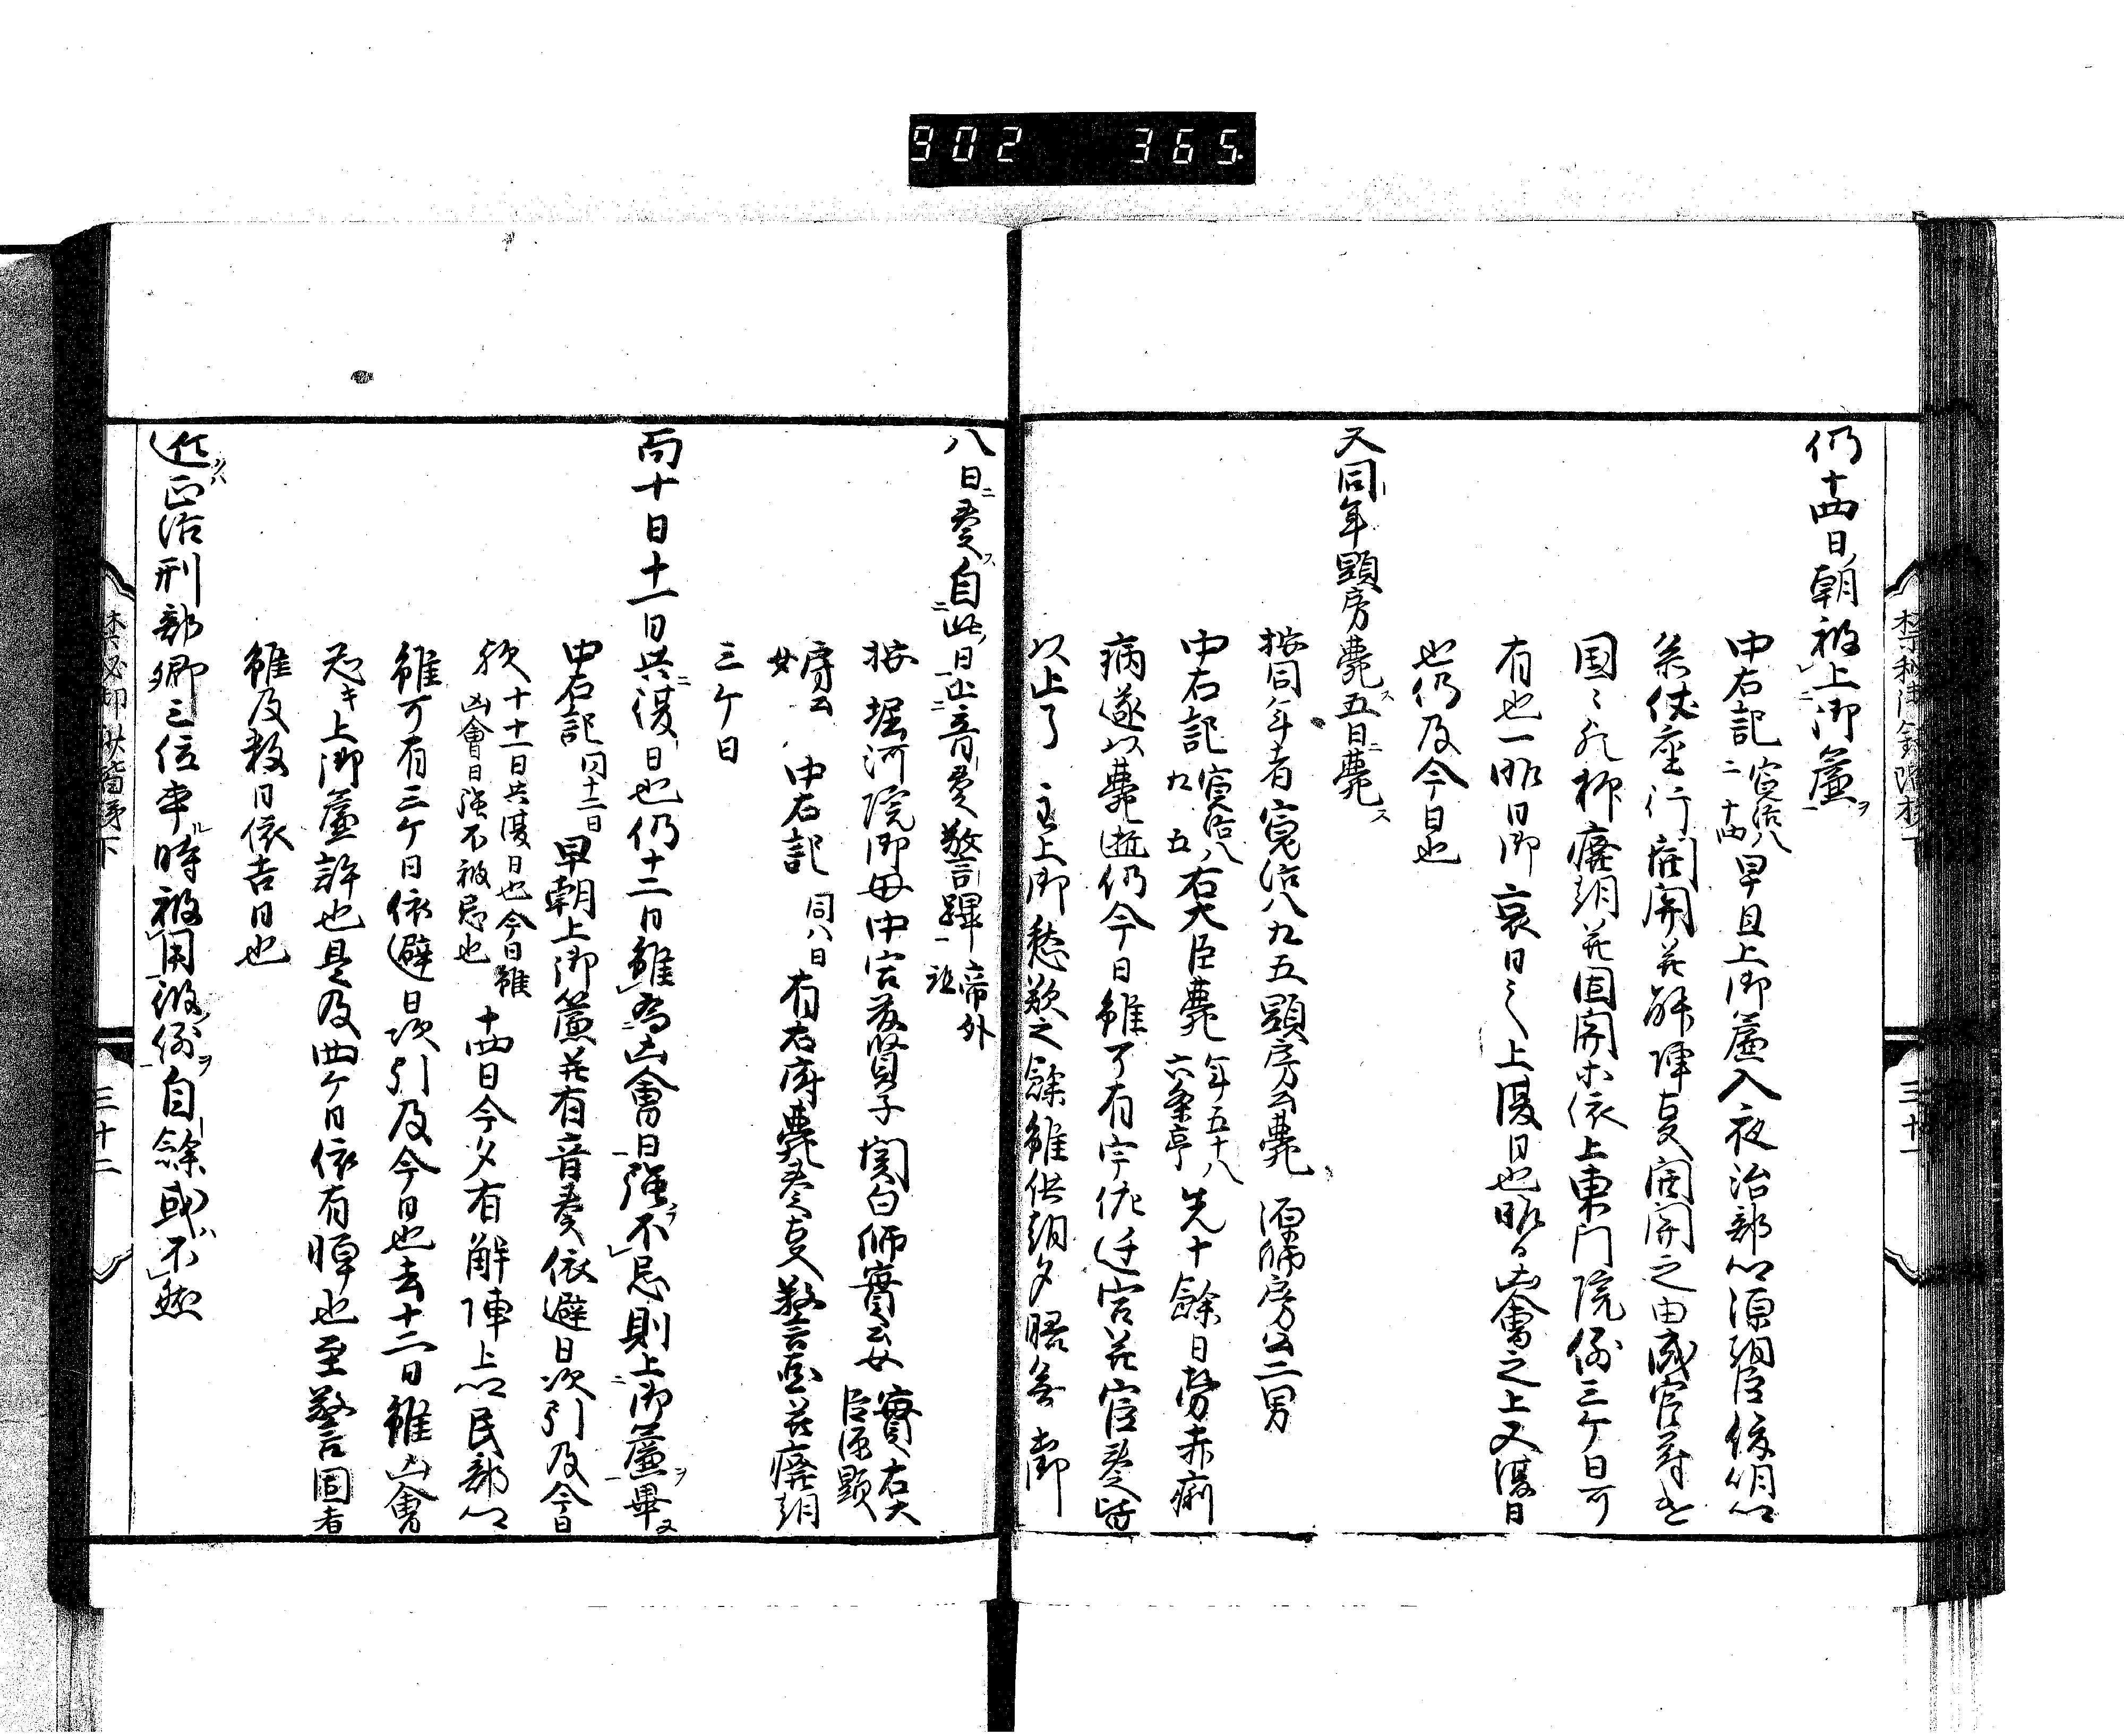 902 365
仍十四日朝被上御簾ヲ
中右記寛治八二十四早旦上御簾入夜治部卿源朝臣俊明卿
参仗座行開関并解陣事関開之由成官符遣
国々凡神廃朝并固関等依上東門院例三ケ日可
有也一昨日御衰日之上復日也昨日凶會之上又復日
也仍及今日也
又同年顕房薨ス五日ニ薨ス
按同年者寛治八九五顕房公薨 源師房公二男
中右記寛治八九五右大臣薨年五十八六条亭先十餘日労赤痢
病遂以薨逝仍今日雖可有宇佐遷宮并官奏皆
以止了 主上御愁歎之餘雖供朝夕膳無御
八日ニ奏ス自此日止音奏警蹕帝外祖
按堀河院御母中宮藤賢子関白師實公女實右大臣源顕
房公女 中右記同八日有右府薨奏事警固并廃朝
三ケ日
而十日十一日共ニ復日也仍十二日雖為凶會日強テ不忌則上御簾ヲ畢又
中右記同十二日早朝上御簾并有音奏依避日次引及今日
歟十十一日共復日也今日雖凶會日強不被忌也十四日今夕有解陣上卿民部卿
雖可有三ケ日依避日次引及今日也去十二日雖凶會
忌キ上御簾許也是及四ケ日依有憚也至警固者
雖及数日依吉日也
近クハ正治刑部卿三位事ル時被用彼例ヲ自餘或不然
三十一
三十二